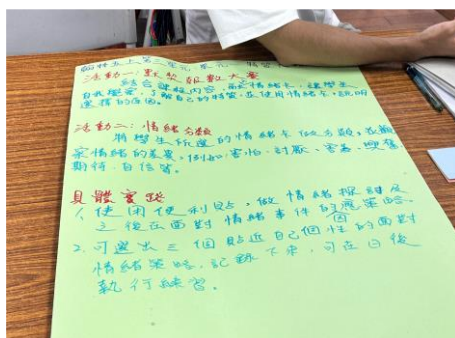 翰林五上第三單元 單元一 特質
活動一:默數報數大賽
結合課程內容,配合情緒卡,讓學生
自我探索,了解自己的特質,並使用情緒卡,說明
選擇的原因。
活動二:情緒分類
將學生所選的情緒卡做分類,去觀
察情緒的差異。例如:害怕、討厭、害羞、興奮
期待、自信等。
具體實踐
1. 使用便利貼,做情緒探索及
之後在面對情緒事件的因應策略。
2. 可選出三個貼近自己個性的面對
情緒策略,記錄下來,可在日後
執行練習。